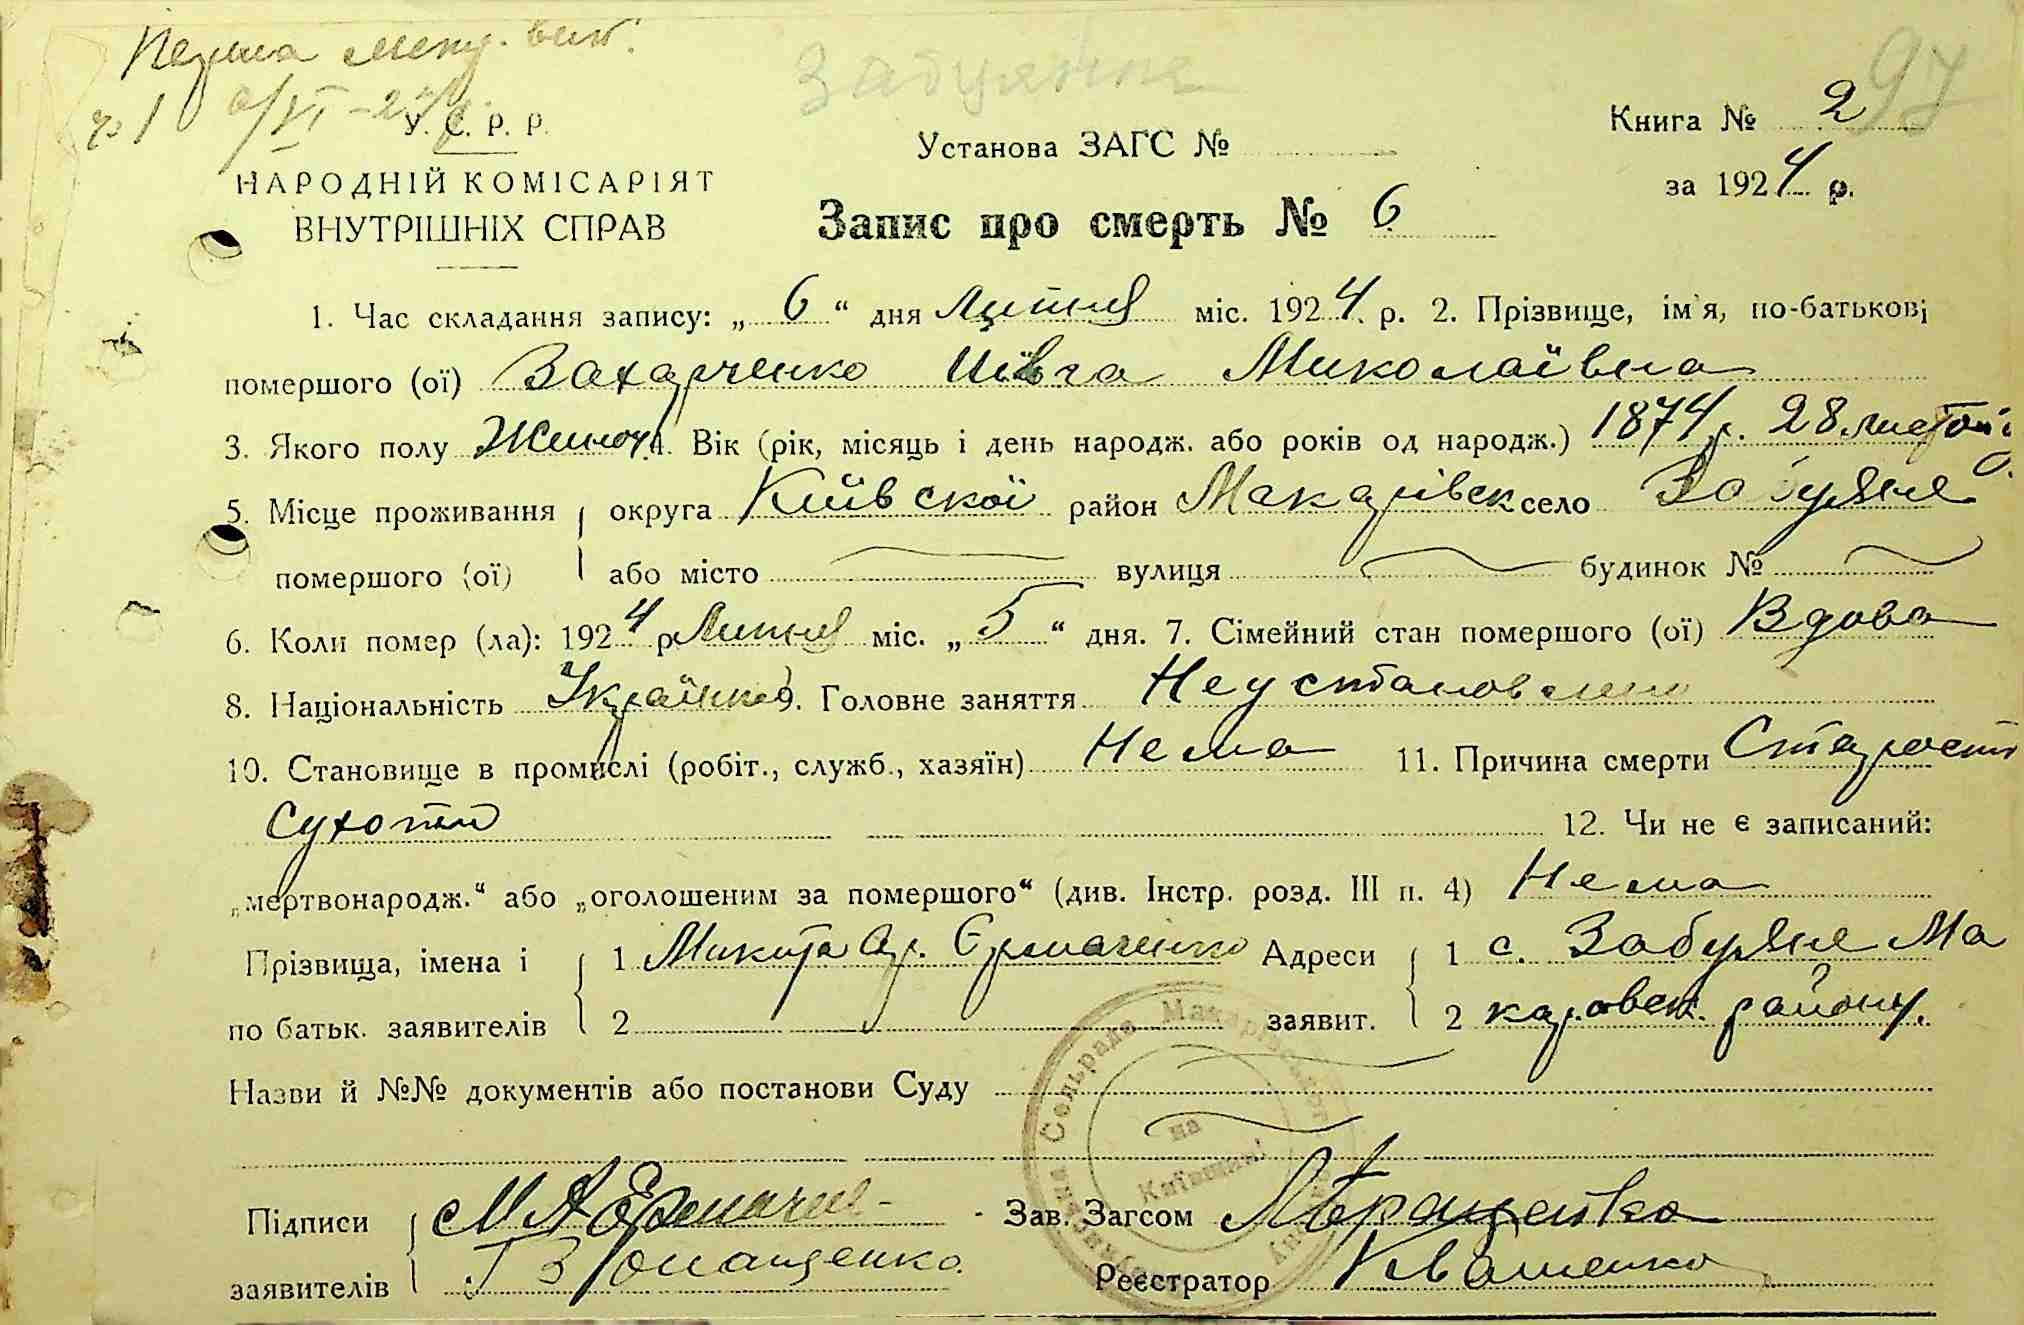 Забуяння
97
У. С. Р. Р.
НАРОДНІЙ КОМІСАРІЯТ
ВНУТРІШНІХ СПРАВ
Установа ЗАГС №
Книга № 2
за 1924 р.
Запис про смерть № 6
1. Час складання запису: „ 6 “ дня Лютня міс. 1924 р. 2. Прізвище, ім'я, по-батькові
помершого (ої) Захарченко Ївга Миколаївна
3. Якого полу Жиноч. 4. Вік (рік, місяць і день народж. або років од народж.) 1874 р. 28
5. Місце проживання округа Київскої район Макарівск село Забуяне
помершого (ої) або місто вулиця будинок №
6. Коли помер (ла): 1924 р. Лютня міс. „ 5 “ дня. 7. Сімейний стан помершого (ої) Вдова
8. Національність Українка 9. Головне заняття Неустановлено
10. Становище в промислі (робіт., служб., хазяїн) Нема 11. Причина смерти Старость
Сухоти 12. Чи не є записаний:
„мертвонародж.“ або „оголошеним за помершого“ (див. Інстр. розд. III п. 4) Нема
Прізвища, імена і 1 Микита Ар. Єрмаченко Адреси 1 с. Забуяне Ма
по батьк. заявителів 2 заявит. 2 каровск. району.
Назви й №№ документів або постанови Суду
Сельрада
на
Київщині
Підписи М А Ермаче- Зав. Загсом
заявителів Реєстратор Квашенко